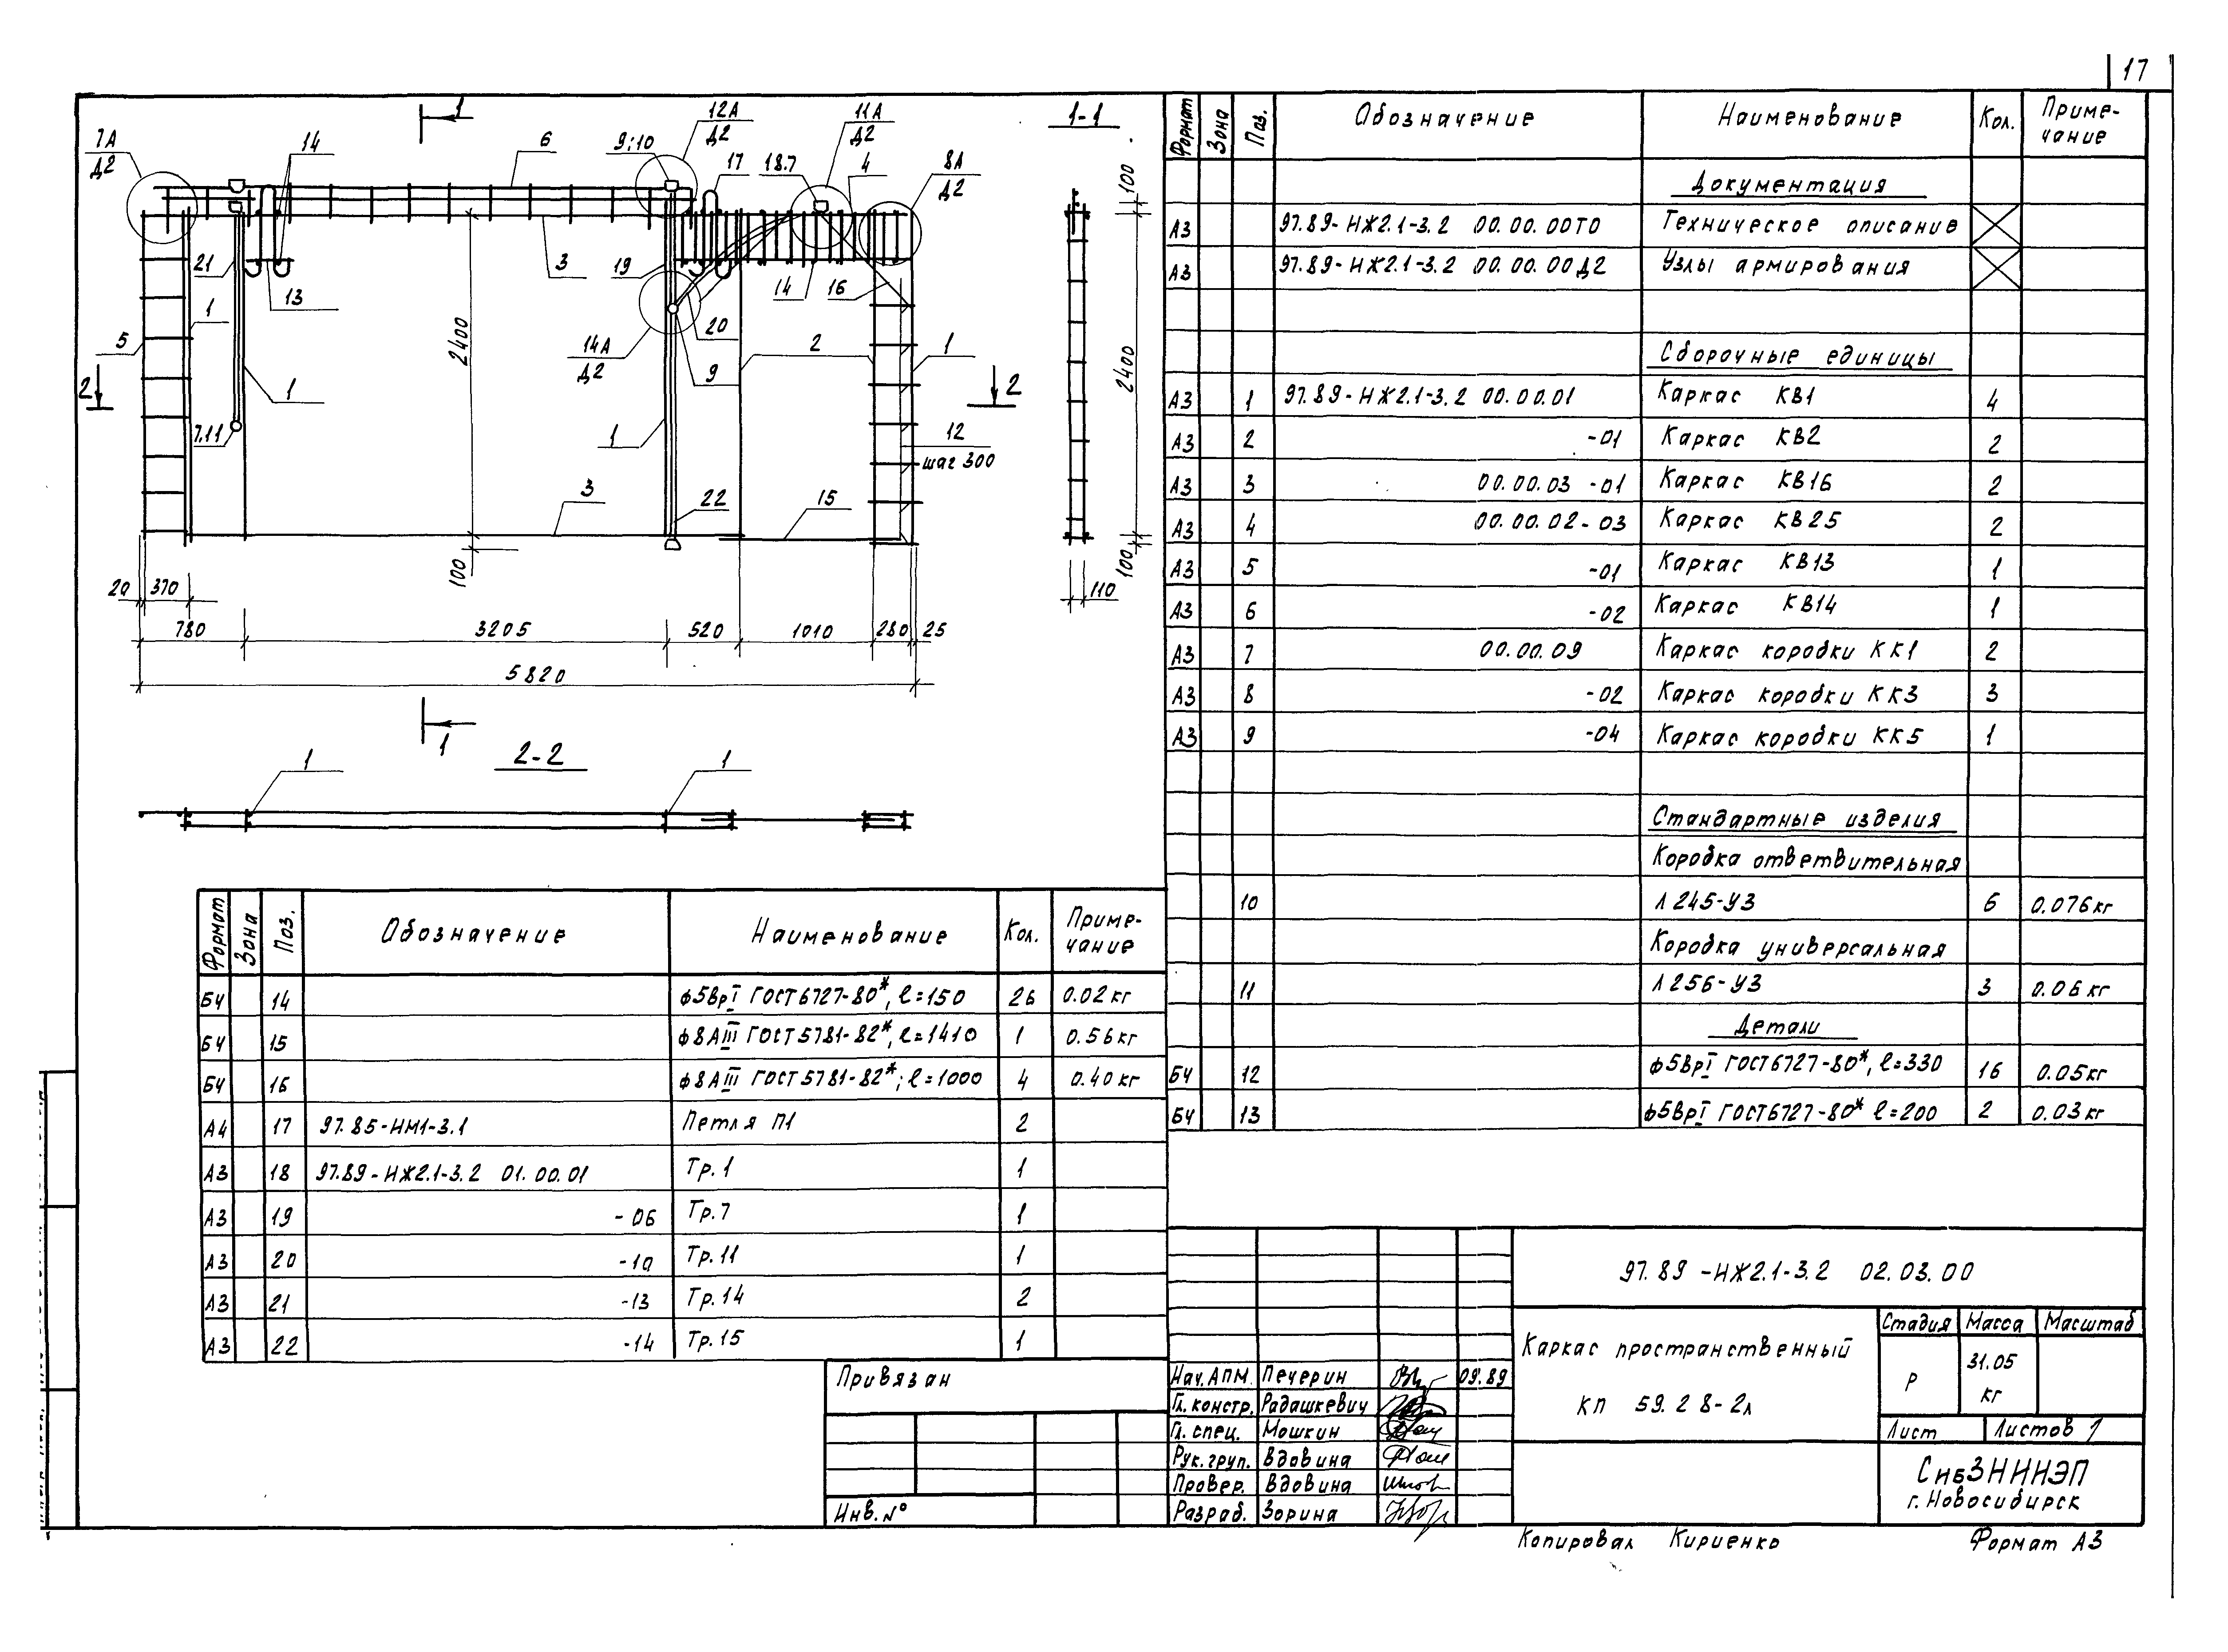 17
1
1-1
7А
Д2
14
6
9;10
12А
Д2
17
18.7
11А
Д2
4
8А
Д2
100
21
13
1
3
19
14
16
20
2400
5
1
14А
Д2
9
2
1
2400
2
2
7.11
1
12
шаг 300
3
22
15
100
100
20
370
110
780
3205
520
1010
280
25
5820
1
2-2
1
1
Формат Зона Поз. Обозначение Наименование Кол. Приме-
чание
Документация
А3 97.89-НЖ2.1-3.2 00.00.00ТО Техническое описание
А3 97.89-НЖ2.1-3.2 00.00.00Д2 Узлы армирования
Сборочные единицы
А3 1 97.89-НЖ2.1-3.2 00.00.01 Каркас КВ1 4
А3 2 -01 Каркас КВ2 2
А3 3 00.00.03 -01 Каркас КВ16 2
А3 4 00.00.02-03 Каркас КВ25 2
А3 5 -01 Каркас КВ13 1
А3 6 -02 Каркас КВ14 1
А3 7 00.00.09 Каркас коробки КК1 2
А3 8 -02 Каркас коробки КК3 3
А3 9 -04 Каркас коробки КК5 1
Стандартные изделия
Коробка ответвительная
10 Л245-У3 6 0.076кг
Коробка универсальная
11 Л256-У3 3 0.06кг
Детали
БЧ 12 ф5ВрI ГОСТ6727-80*, ℓ=330 16 0.05кг
БЧ 13 ф5ВрI ГОСТ6727-80* ℓ=200 2 0.03кг
Формат Зона Поз. Обозначение Наименование Кол. Приме-
чание
БЧ 14 ф5ВрI ГОСТ6727-80*, ℓ=150 26 0.02кг
БЧ 15 ф8АIII ГОСТ5781-82*, ℓ=1410 1 0.56кг
БЧ 16 ф8АIII ГОСТ5781-82*; ℓ=1000 4 0.40кг
А4 17 97.85-НМ1-3.1 Петля П1 2
А3 18 97.89-НЖ2.1-3.2 01.00.01 Тр.1 1
А3 19 -06 Тр.7 1
А3 20 -10 Тр.11 1
А3 21 -13 Тр.14 2
А3 22 -14 Тр.15 1
Привязан
Инв.№
97.89-НЖ2.1-3.2 02.03.00
Каркас пространственный
КП 59.28-2л
Стадия Масса Масштаб
Р 31.05
кг
Лист Листов 1
СибЗНИИЭП
г.Новосибирск
Нач.АПМ. Печерин 09.89
Гл.констр. Радашкевич
Гл.спец. Мошкин
Рук.груп. Вдовина
Провер. Вдовина
Разраб. Зорина
Копировал Кириенко Формат А3